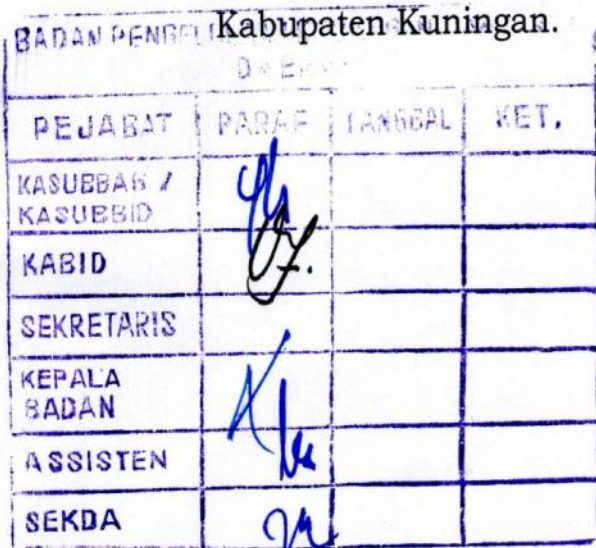 Kabupaten Kuningan.
BADAN
PEJABAT PARAF TANGGAL KET.
KASUBBAG /
KASUBBID
KABID
SEKRETARIS
KEPALA
BADAN
ASSISTEN
SEKDA